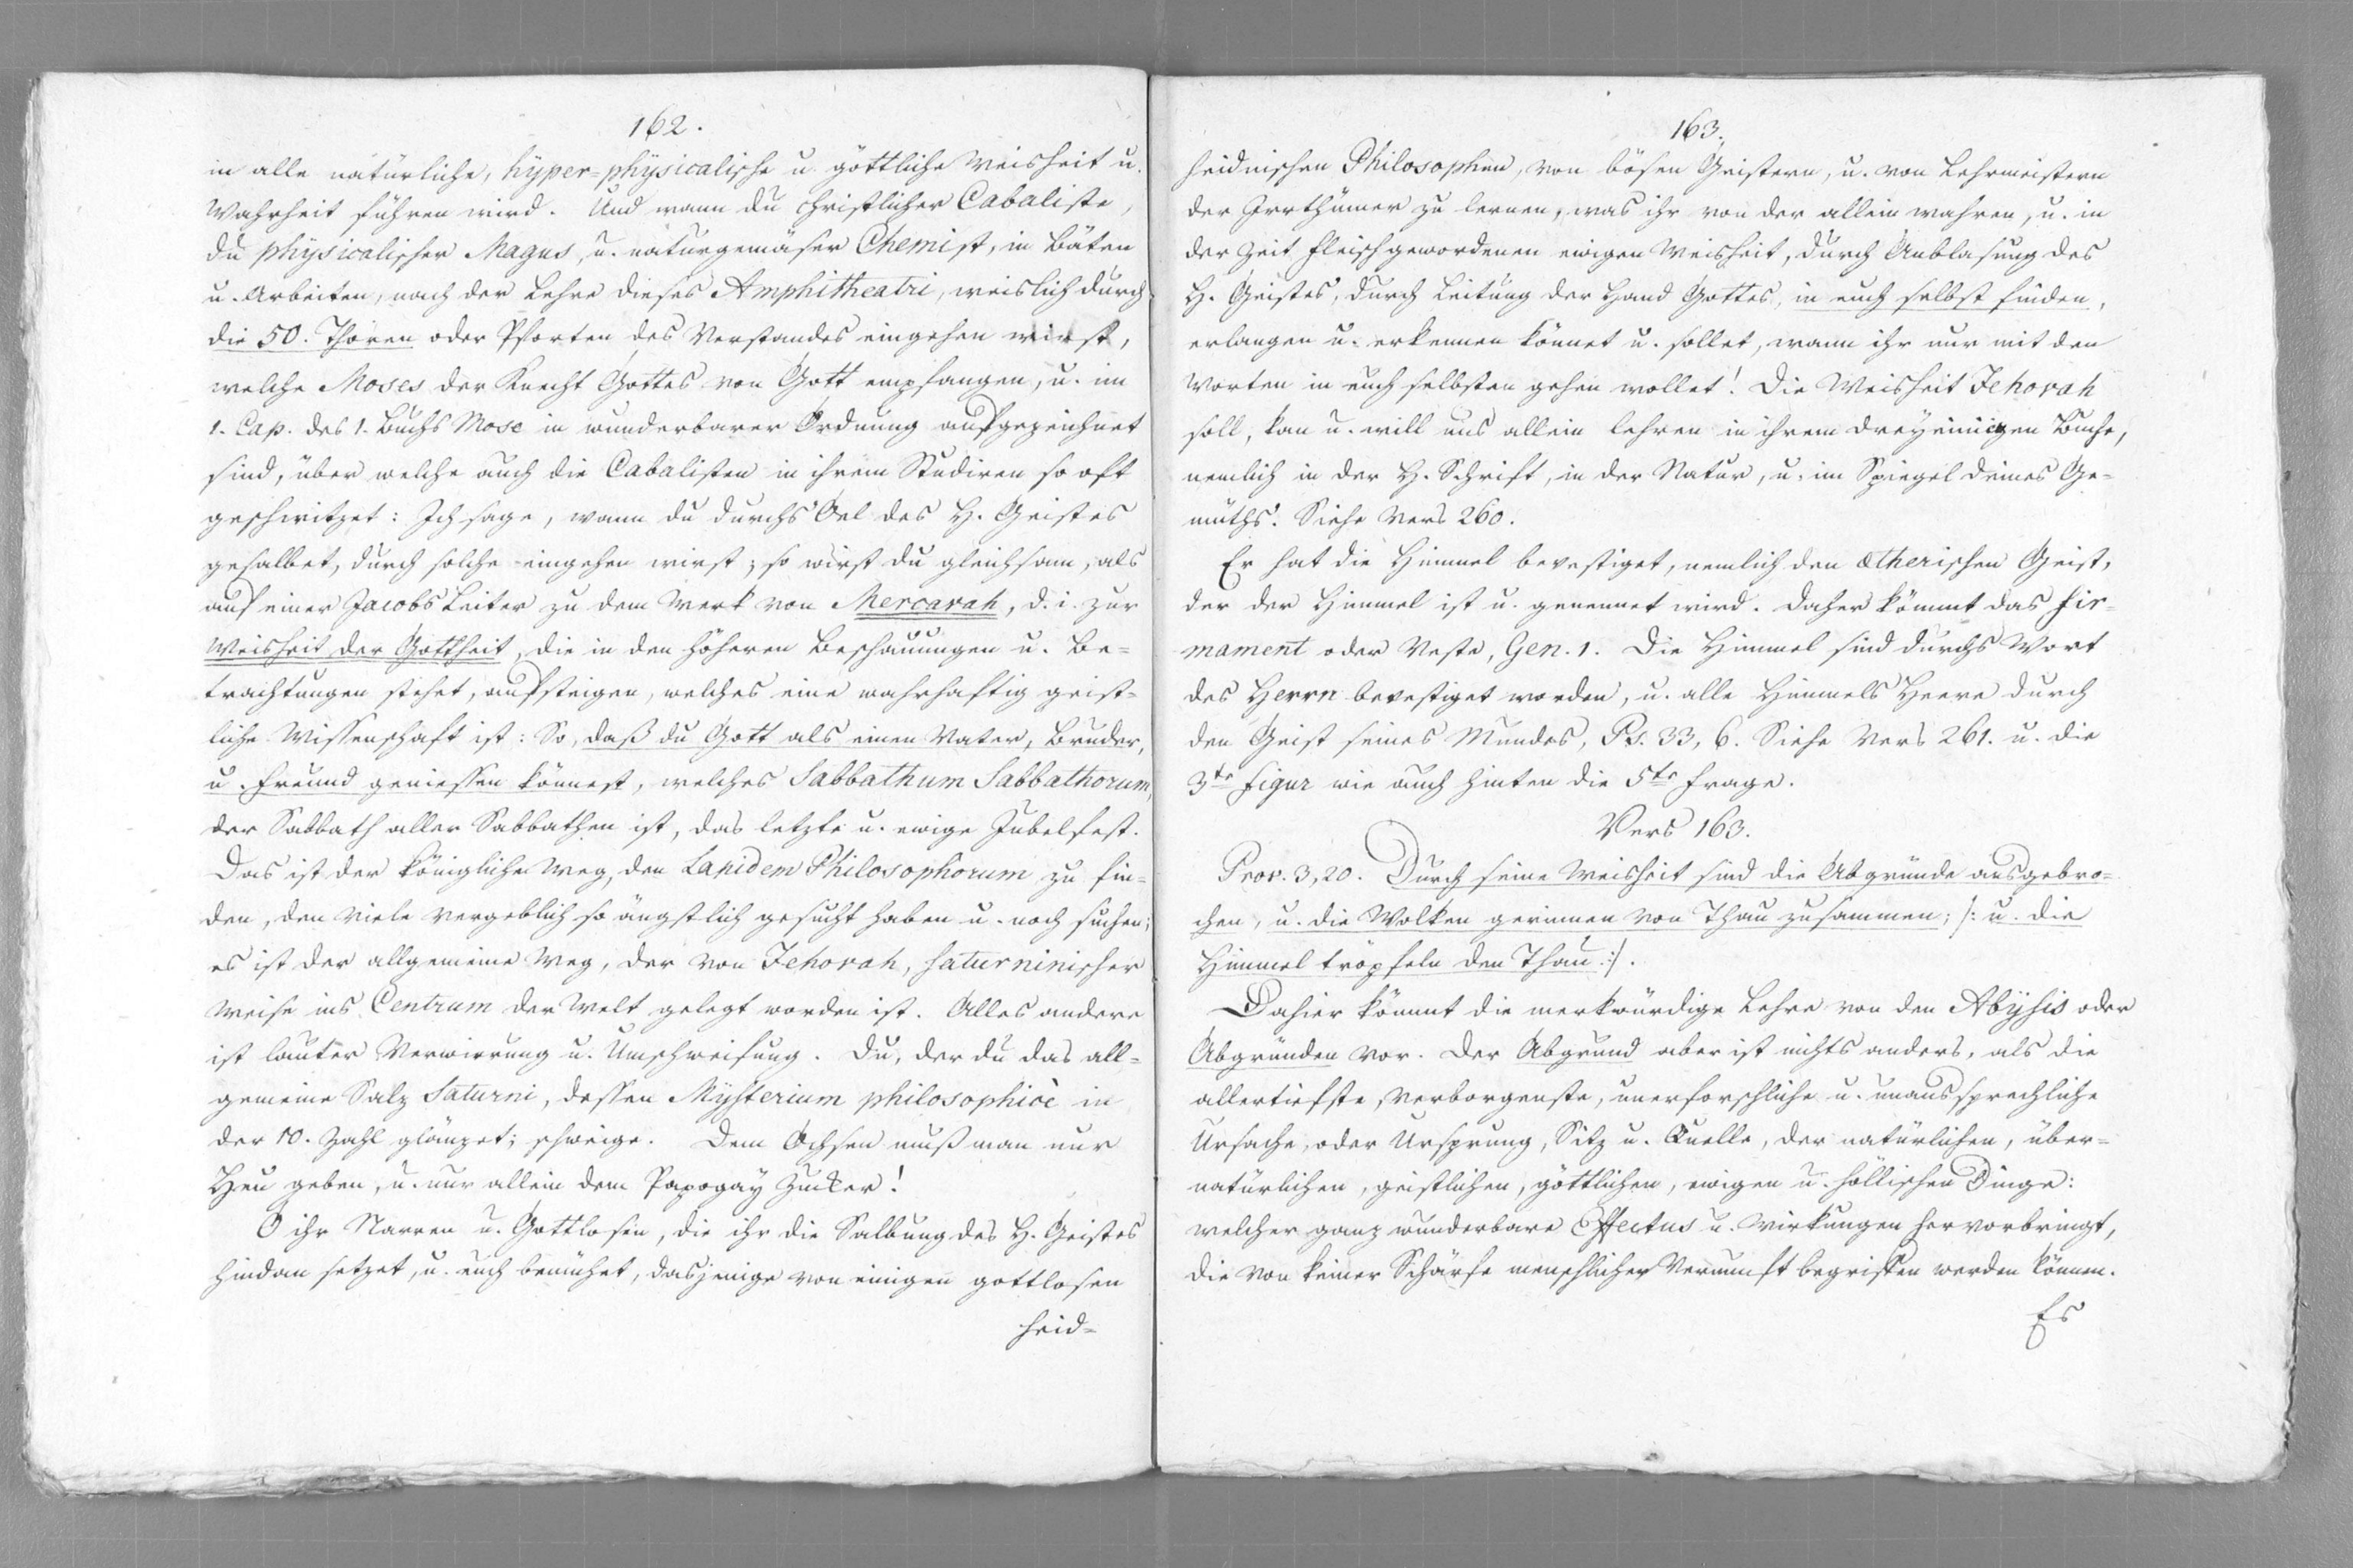 162.
in alle natürliche, hÿper=phÿsicalische u. göttliche Weisheit u.
Wahrheit führen wird. Und wann du christlicher Cabaliste,
du phÿsicalischer Magus, u. naturgemäser Chemist, in Bäten
u. Arbeiten, nach der Lehre dieses Amphitheatri, weislich durch
die 50. Thoren oder Pforten des Verstandes eingehen wirst,
welche Moses der Knecht Gottes von Gott empfangen, u. im
1. Cap. des 1. Buchs Mose in wunderbarer Ordnung aufgezeichnet
sind, über welche auch die Cabalisten in ihrem Studiren so oft
geschwitzet: Ich sage, wann du durchs Oel des H. Geistes
gesalbet, durch solche eingehen wirst; so wirst du gleichsam, als
auf einer Jacobs Leiter zu dem Werk von Mercavah, d. i. zur
Weisheit der Gottheit, die in den höheren Beschauungen u. Be=
trachtungen stehet, aufsteigen, welches eine wahrhaftig geist=
liche Wissenschaft ist: So, daß du Gott als einen Vater, Bruder,
u. Freund geniessen könnest, welches Sabbathum Sabbathorum,
der Sabbath aller Sabbathen ist, das letzte u. ewige Jubelfest.
Das ist der königliche Weg, den Lapidem Philosophorum zu fin=
den, den viele vergeblich so ängstlich gesucht haben u. noch suchen;
es ist der allgemeine Weg, der von Jehovah, saturninischer
Weise ins Centrum der Welt gelegt worden ist. Alles andere
ist lauter Verwirrung u. Umschweifung. Du, der du das all=
gemeine Salz Saturni, dessen Mÿsterium philosophicè in
der 10. Zahl glänzet; schweige. Dem Ochsen muß man nur
Heu geben, u. nur allein dem Papogaÿ Zucker!
O ihr Narren u. Gottlosen, die ihr die Salbung des H. Geistes
hindan setzet, u. euch bemühet, dasjenige von einigen gottlosen
heid=
163.
heidnischen Philosophen, von bösen Geistern, u. von Lehrmeistern
der Irrthümer zu lernen, was ihr von der allein wahren, u. in
der Zeit fleischgewordenen ewigen Weisheit, durch Anblasung des
H. Geistes, durch Leitung der Hand Gottes, in euch selbst finden,
erlangen u. erkennen könnet u. sollet, wann ihr nur mit den
Worten in euch selbsten gehen wollet! Die Weisheit Jehovah
soll, kan u. will uns allein lehren in ihrem dreÿeinigen Buche,
nemlich in der H. Schrift, in der Natur, u. im Spiegel deines Ge=
müths. Siehe Vers 260.
Er hat die Himmel bevestiget, nemlich den ætherischen Geist,
der der Himmel ist u. genennet wird. Daher kömmt das Fir=
mament oder Veste, Gen. 1. Die Himmel sind durchs Wort
des Herrn bevestiget worden, u. alle Himmels Heere durch
den Geist seines Mundes, Ps. 33, 6. Siehe Vers 261. u. die
3te Figur wie auch hinten die 5te Frage.
Vers 163.
Prov. 3, 20. Durch seine Weisheit sind die Abgründe ausgebro=
chen, u. die Wolken gerinnen von Thau zusammen; /: u. die
Himmel tröpfeln den Thau :/.
Dahier kömmt die merkwürdige Lehre von den Abÿsis oder
Abgründen vor. Der Abgrund aber ist nichts anders, als die
allertiefste, verborgenste, unerforschliche u. unaussprechliche
Ursache, oder Ursprung, Sitz u. Quelle, der natürlichen, über=
natürlichen, geistlichen, göttlichen, ewigen u. höllischen Dinge:
welcher ganz wunderbare Effectus u. Wirkungen hervorbringt,
die von keiner Schärfe menschlicher Vernunft begriffen werden können.
Es